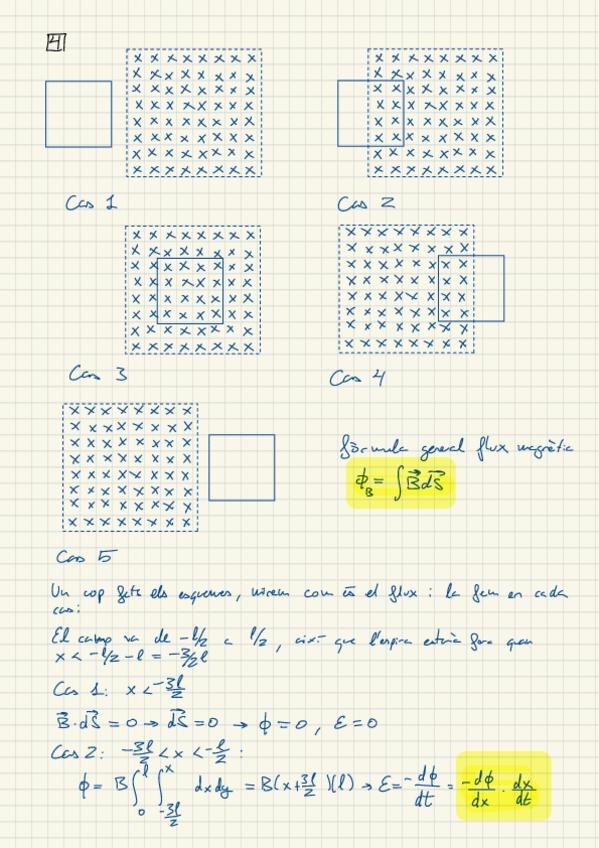 4
Cas 1
Cas 2
Cas 3
Cas 4
Cas 5
fórmula general flux magnètic
ϕ_B = ∫B⃗dS⃗
Un cop fets els esquemes, mirem com és el flux i la fem en cada
cas:
El camp va de -l/2 a l/2, així que l'espira estaria fora quan
x < -l/2 - l = -3/2 l
Cas 1: x < -3l/2
B⃗·dS⃗ = 0 → dS⃗ = 0 → ϕ = 0, ε = 0
Cas 2: -3l/2 < x < -l/2 :
ϕ = B∫₀^l ∫_{-3l/2}^x dxdy = B(x+3l/2)(l) → ε = -dϕ/dt = -dϕ/dx · dx/dt